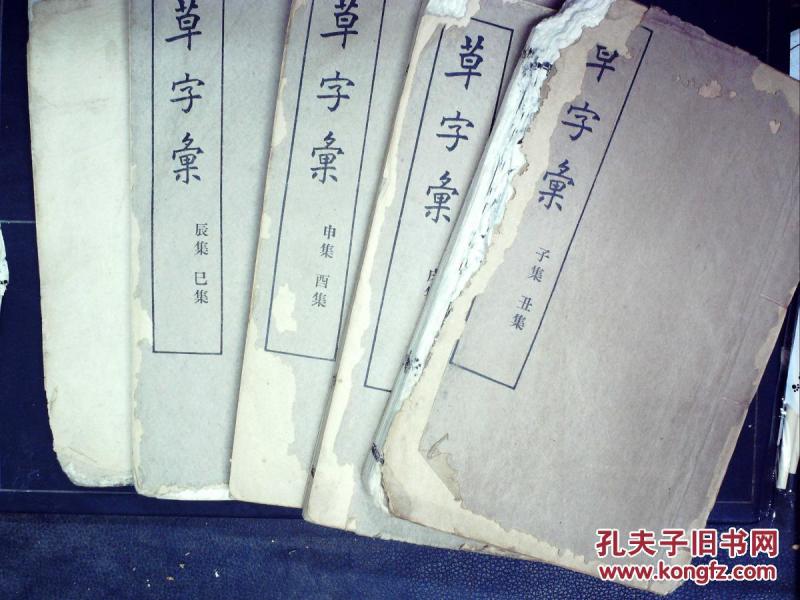 草字彙
辰集 巳集
草字彙
申集 酉集
草字彙
戌集
草字彙
子集 丑集
孔夫子旧书网
www.kongfz.com